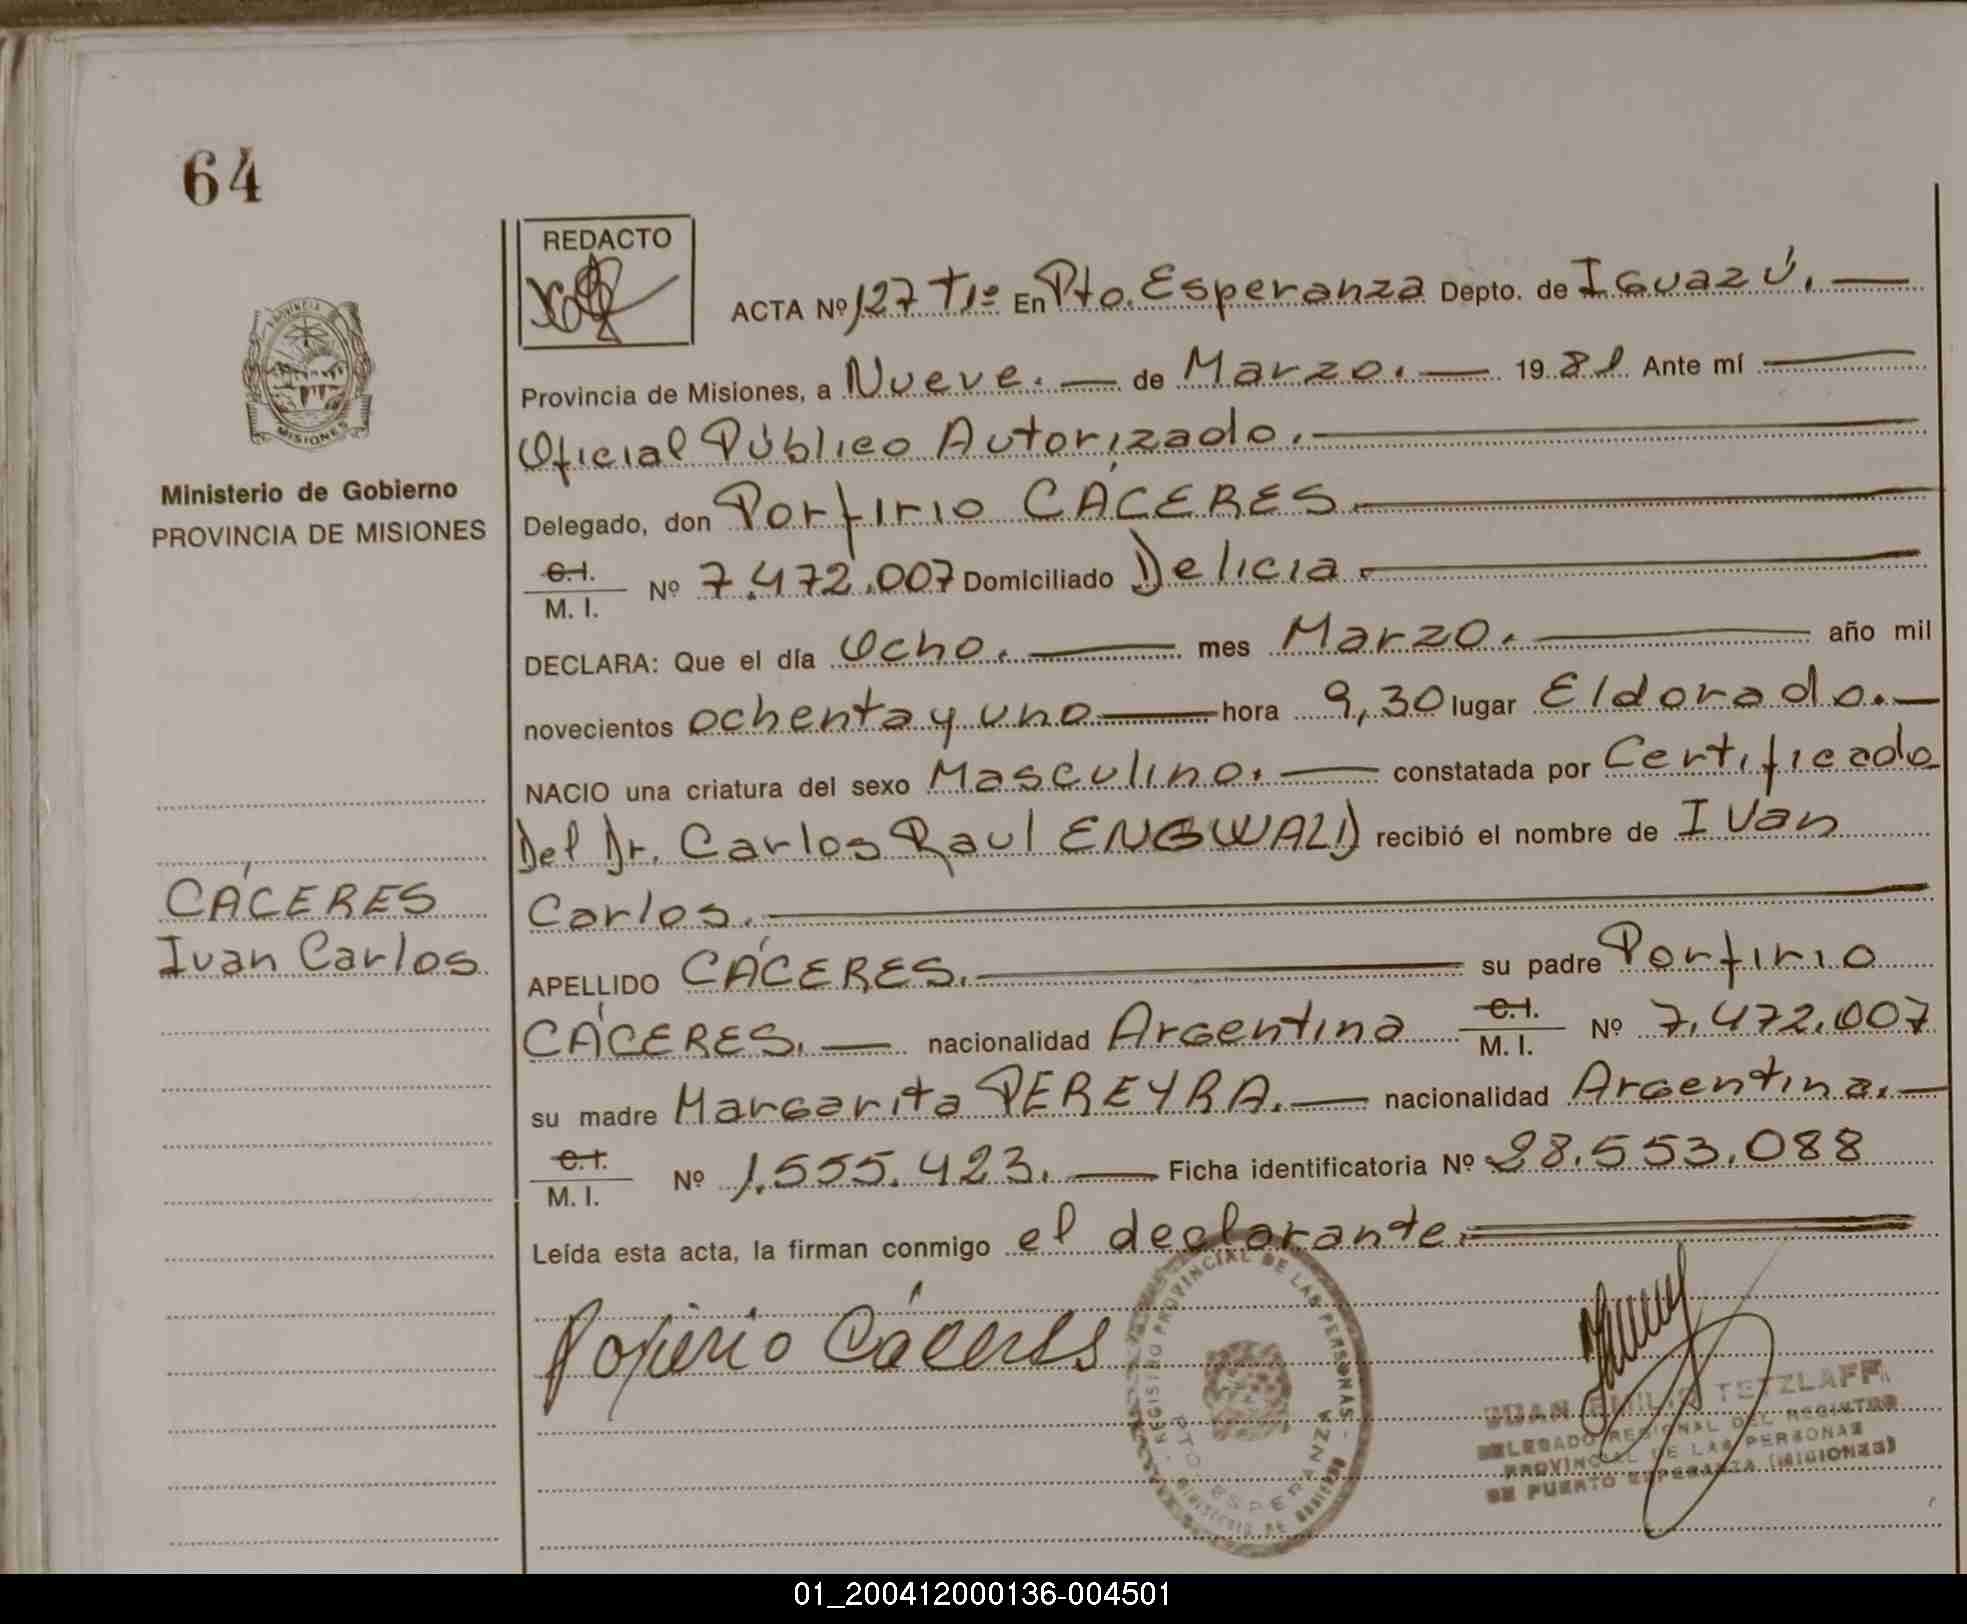 64
REDACTO
ACTA Nº 127 Tº1º En Pto. Esperanza Depto. de Iguazú.
Provincia de Misiones, a Nueve. de Marzo. 1981 Ante mí
Oficial Público Autorizado.
Delegado, don Porfirio CÁCERES
C.I. M. I. Nº 7.472.007 Domiciliado Delicia
DECLARA: Que el día Ocho. mes Marzo. año mil
novecientos ochenta y uno hora 9,30 lugar Eldorado.
NACIO una criatura del sexo Masculino. constatada por Certificado
Del Dr. Carlos Raul ENGWALD recibió el nombre de Ivan
Carlos.
APELLIDO CÁCERES. su padre Porfirio
CÁCERES. nacionalidad Argentina C.I. M. I. Nº 7.472.007
su madre Margarita PEREYRA. nacionalidad Argentina.
C.I. M. I. Nº 1.555.423. Ficha identificatoria Nº 28.553.088
Leída esta acta, la firman conmigo el declarante.
Porfirio Cáceres
PROVINCIA
MISIONES
Ministerio de Gobierno
PROVINCIA DE MISIONES
CÁCERES
Ivan Carlos
REGISTRO PROVINCIAL DE LAS PERSONAS -
PTO. ESPERANZA
MINISTERIO DE GOBIERNO
JUAN EMILIO TETZLAFF
DELEGADO REGIONAL DEL REGISTRO
PROVINCIAL DE LAS PERSONAS
DE PUERTO ESPERANZA (MISIONES)
01_200412000136-004501